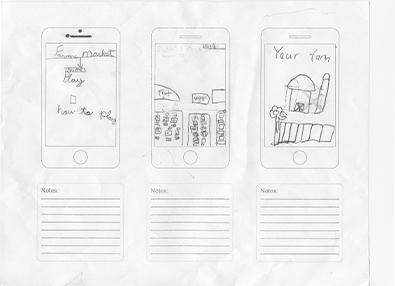 Farms Market
Play
how to play
Fruit
veges
Your farm
Notes:
Notes:
Notes: